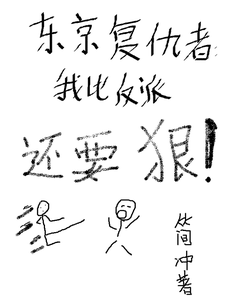 东京复仇者
我比反派
还要狠!
从简冲著